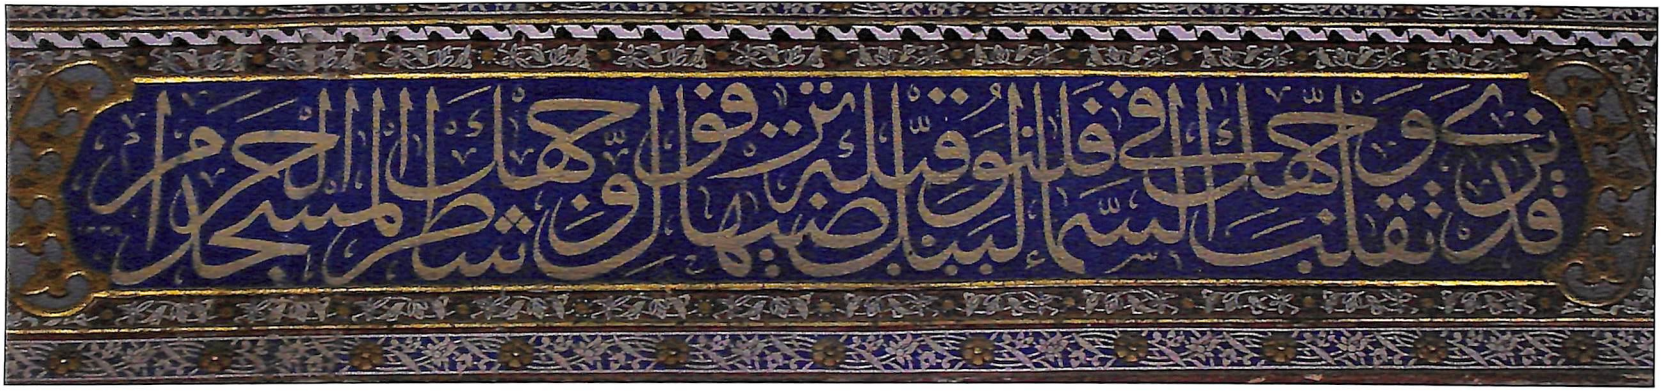 قَدْ نَرَىٰ تَقَلُّبَ وَجْهِكَ فِي السَّمَاءِ فَلَنُوَلِّيَنَّكَ قِبْلَةً تَرْضَاهَا فَوَلِّ وَجْهَكَ شَطْرَ الْمَسْجِدِ الْحَرَامِ